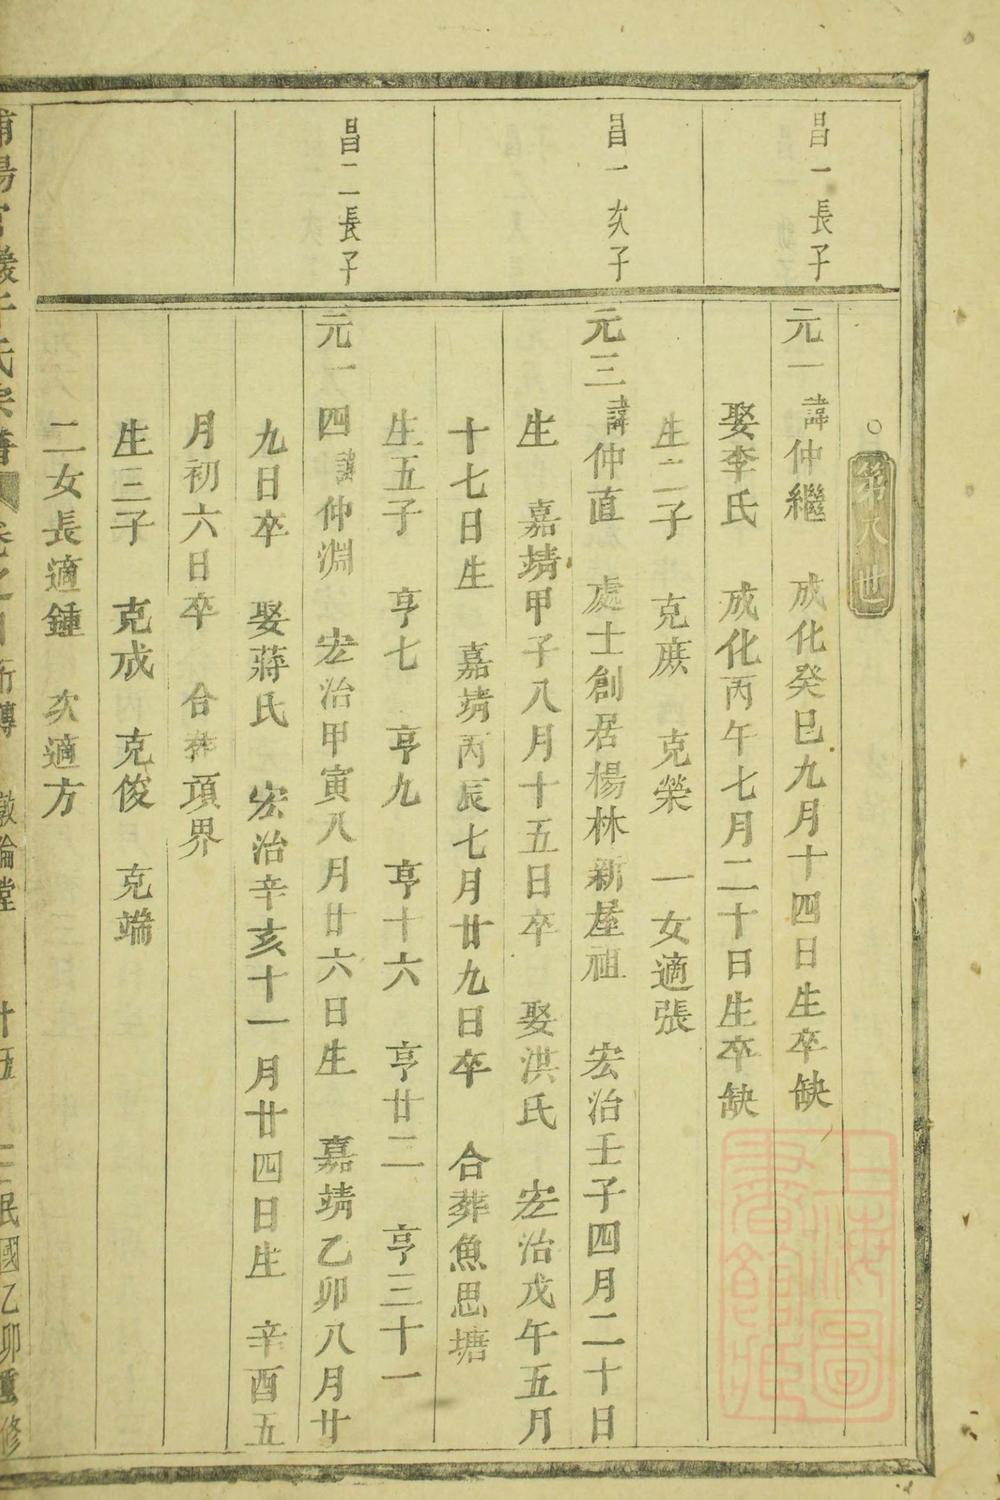 第八世
昌一長子
元一諱仲繼 成化癸巳九月十四日生卒缺
娶李氏 成化丙午七月二十日生卒缺
生二子 克庶 克榮 一女適張
昌一次子
元三諱仲直 處士創居楊林新屋祖 宏治壬子四月二十日
生 嘉靖甲子八月十五日卒 娶洪氏 宏治戊午五月
十七日生 嘉靖丙辰七月廿九日卒 合葬魚思塘
生五子 亨七 亨九 亨十六 亨廿二 亨三十一
昌二長子
元一四諱仲淵 宏治甲寅八月廿六日生 嘉靖乙卯八月廿
九日卒 娶蔣氏 宏治辛亥十一月廿四日生 辛酉五
月初六日卒 合葬項界
生三子 克成 克俊 克端
二女長適鍾 次適方
氏宗譜 卷之 敦倫堂 廿五 民國乙卯重修
上海圖書館藏